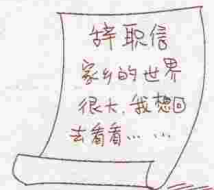 辞职信
家乡的世界
很大，我想回
去看看……